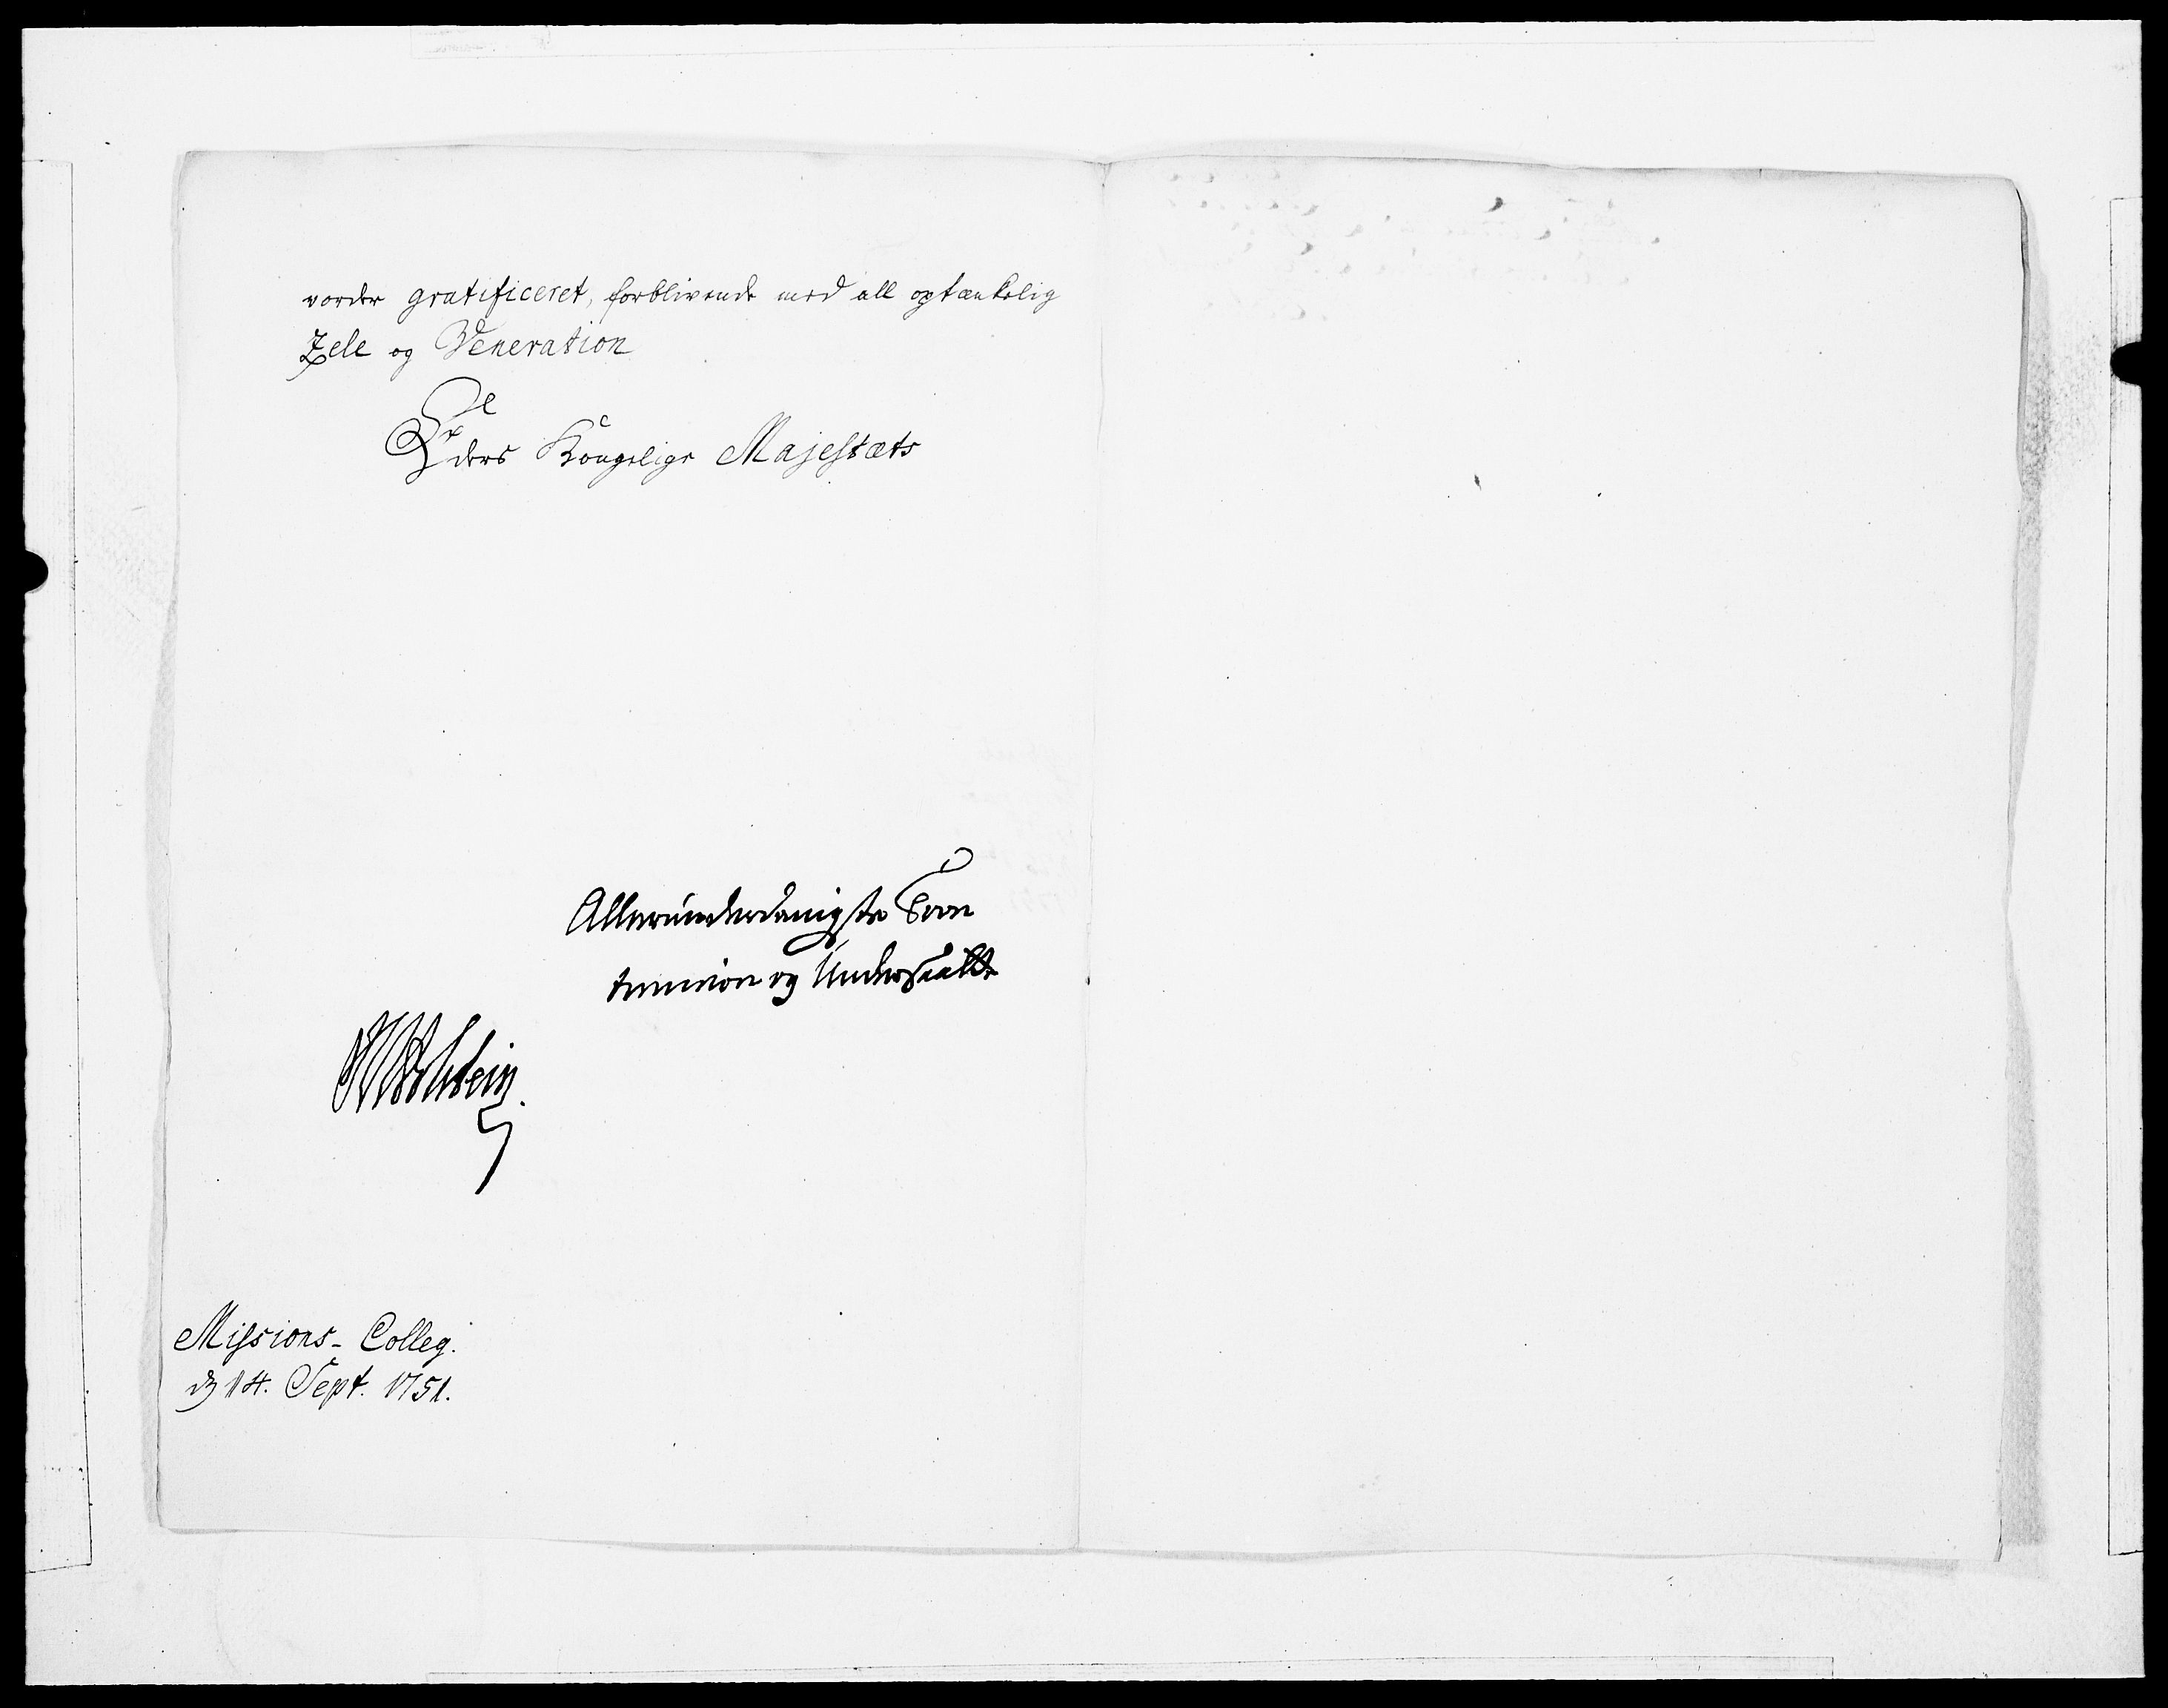 vorder gratificeret, forblivende med all optænkelig
Zele og Veneration
Eders Kongelige Majestæts
Allerunderdanigste Troe
og Undersaatte
Missions-Colleg.
d. 14. Sept. 1751.